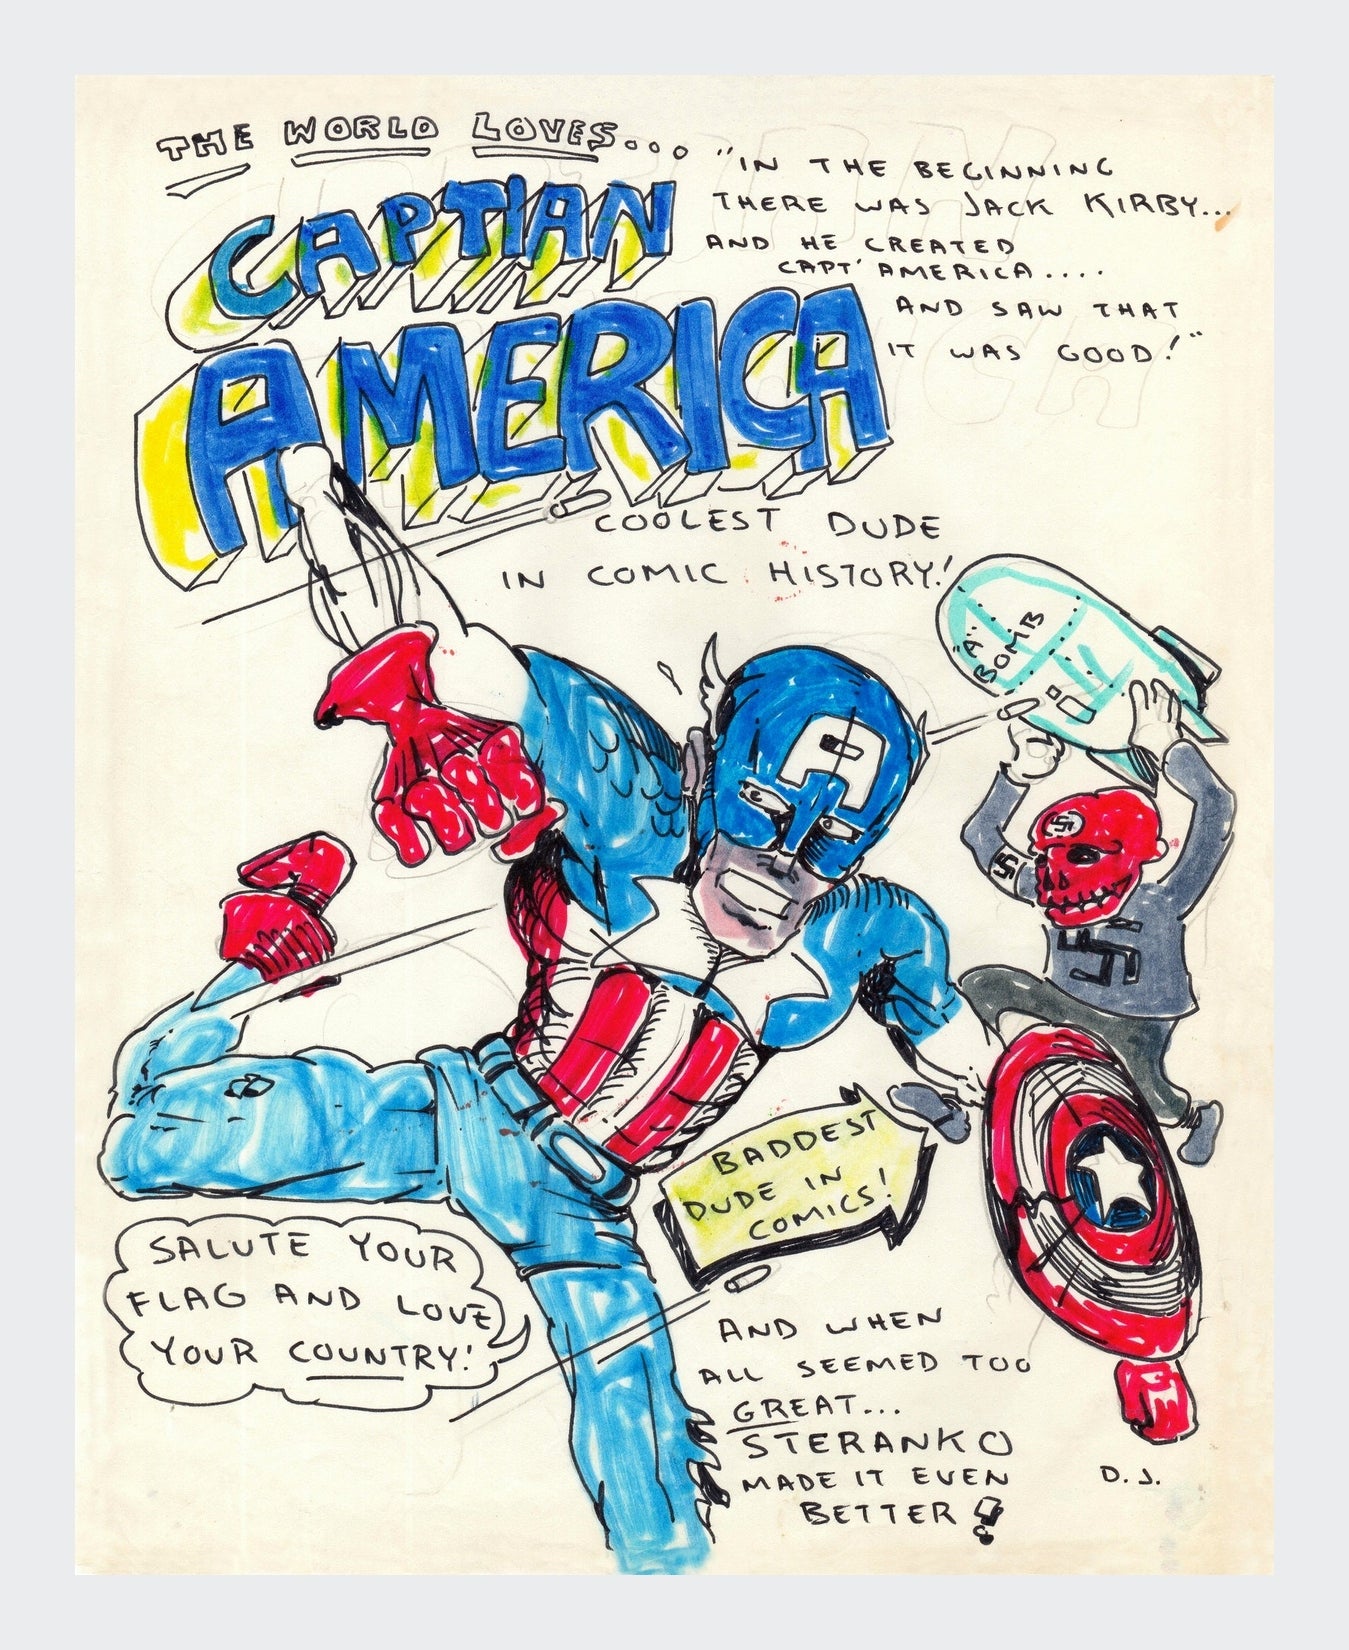 THE WORLD LOVES...
CAPTIAN
AMERICA
"IN THE BEGINNING
THERE WAS JACK KIRBY...
AND HE CREATED
CAPT' AMERICA....
AND SAW THAT
IT WAS GOOD!"
COOLEST DUDE
IN COMIC HISTORY!
"A"
BOMB
A
BADDEST
DUDE IN
COMICS!
SALUTE YOUR
FLAG AND LOVE
YOUR COUNTRY!
AND WHEN
ALL SEEMED TOO
GREAT...
STERANKO
MADE IT EVEN
BETTER!
D.J.